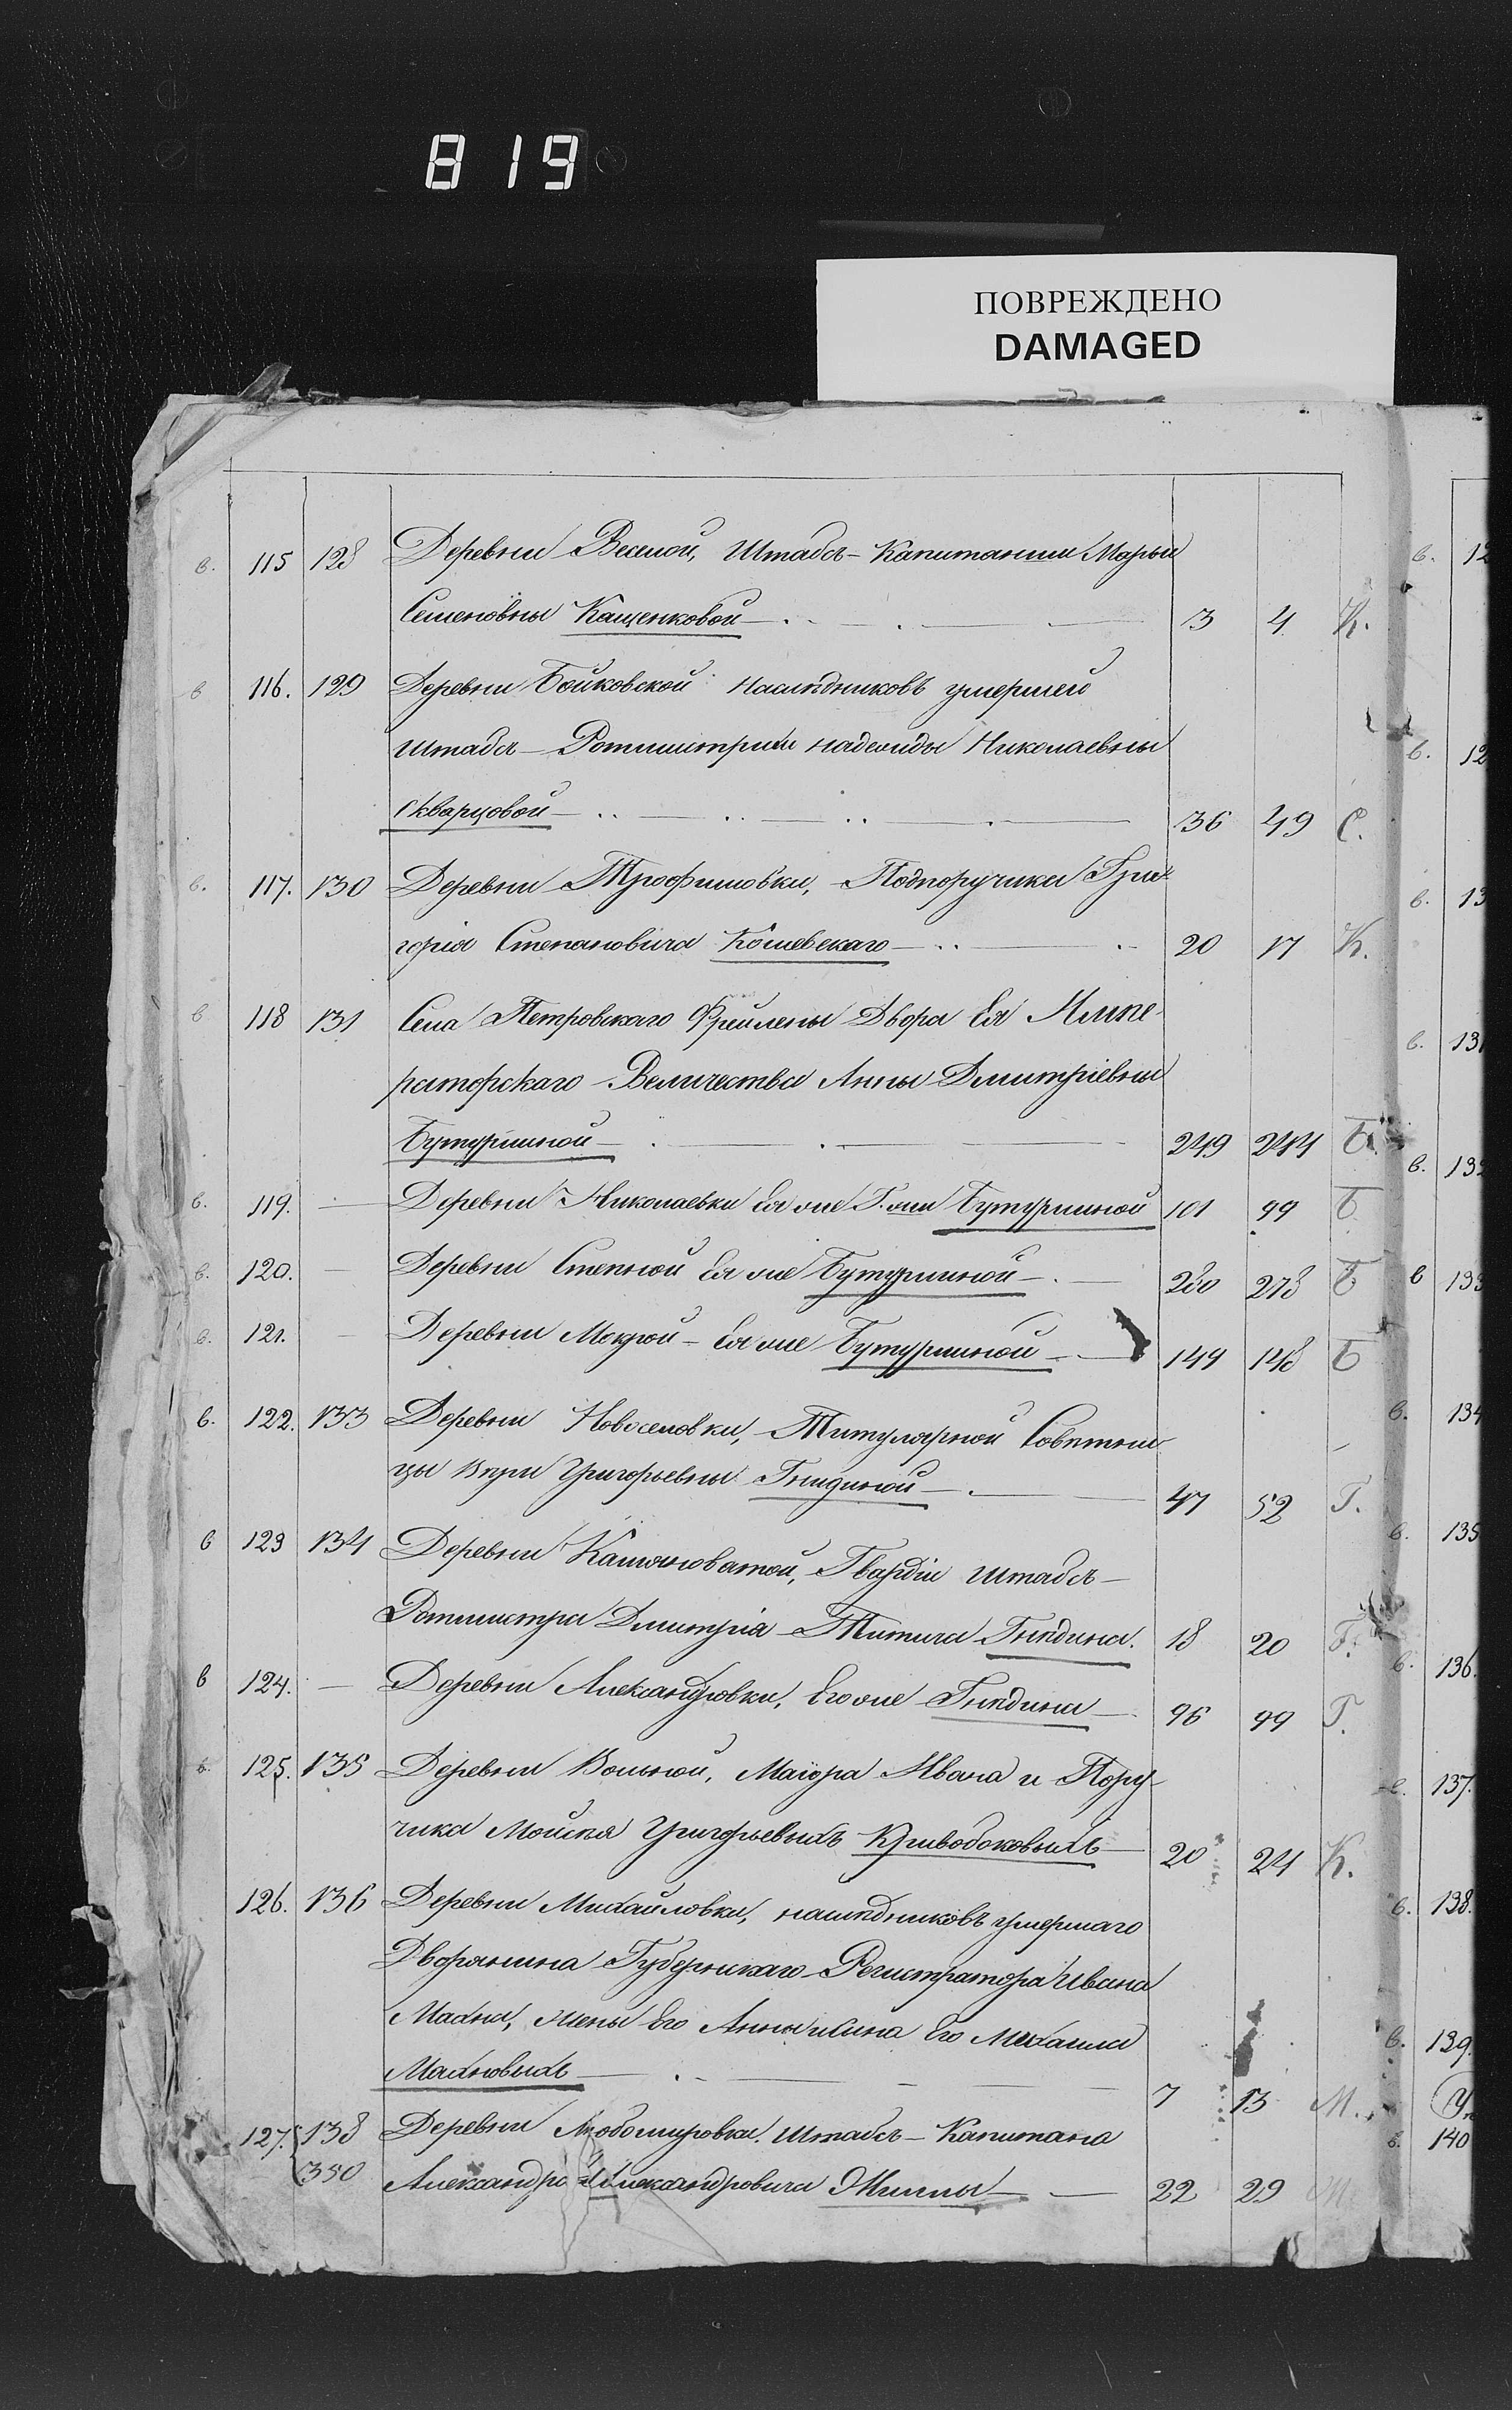 819
ПОВРЕЖДЕНО
DAMAGED
в. 115 128 Деревни Веселой, Штабсъ-Капитанши Марьи
Семеновны Кащенковой 3 4 К.
в 116. 129 Деревни Бойковской наслѣдниковъ умершей
Штабсъ-Ротмистрши Надежды Николаевны
Скварцовой 36 49 С.
в. 117. 130 Деревни Трофимовки, Подпоручика Гри-
горія Степановича Кошевскаго 20 17 К.
в 118 131 Села Петровскаго Фрейлены Двора Ея Импе-
раторскаго Величества Анны Дмитріевны
Бутурлиной 249 244 Б.
в. 119. — Деревни Николаевки Ея же Г-жи Бутурлиной 101 99 Б
в. 120. — Деревни Степной Ея же Бутурлиной 280 278 Б
в. 121. — Деревни Мокрой Ея же Бутурлиной 149 148 Б
в. 122. 133 Деревни Новоселовки, Титулярной Совѣтни-
цы Вѣры Григорьевны Гнидиной 47 52 Г.
в 123 134 Деревни Каменоватой, Гвардіи Штабсъ-
Ротмистра Дмитрія Титича Гнѣдина. 18 20 Г.
в 124. — Деревни Александровки, Его же Гнѣдина 96 99 Г.
в. 125. 135 Деревни Вольной, Маіора Ивана и Пору-
чика Мойсѣя Григорьевыхъ Кривобоковыхъ 20 24 К.
126. 136 Деревни Михайловки, наслѣдниковъ умершаго
Дворянина Губернскаго Регистратора Ивана
Махна, жены Его Анны и Сына Его Михаила
Махновыхъ 7 13 М.
127. 138 Деревни Любомировки, Штабсъ-Капитана
350 Александра Александровича Жилы 22 29
в. 12
в. 12
в. 13
в. 131
в. 132
в 133
в. 134
в. 135
в. 136.
в. 137.
в. 138.
в. 139.
в. 140